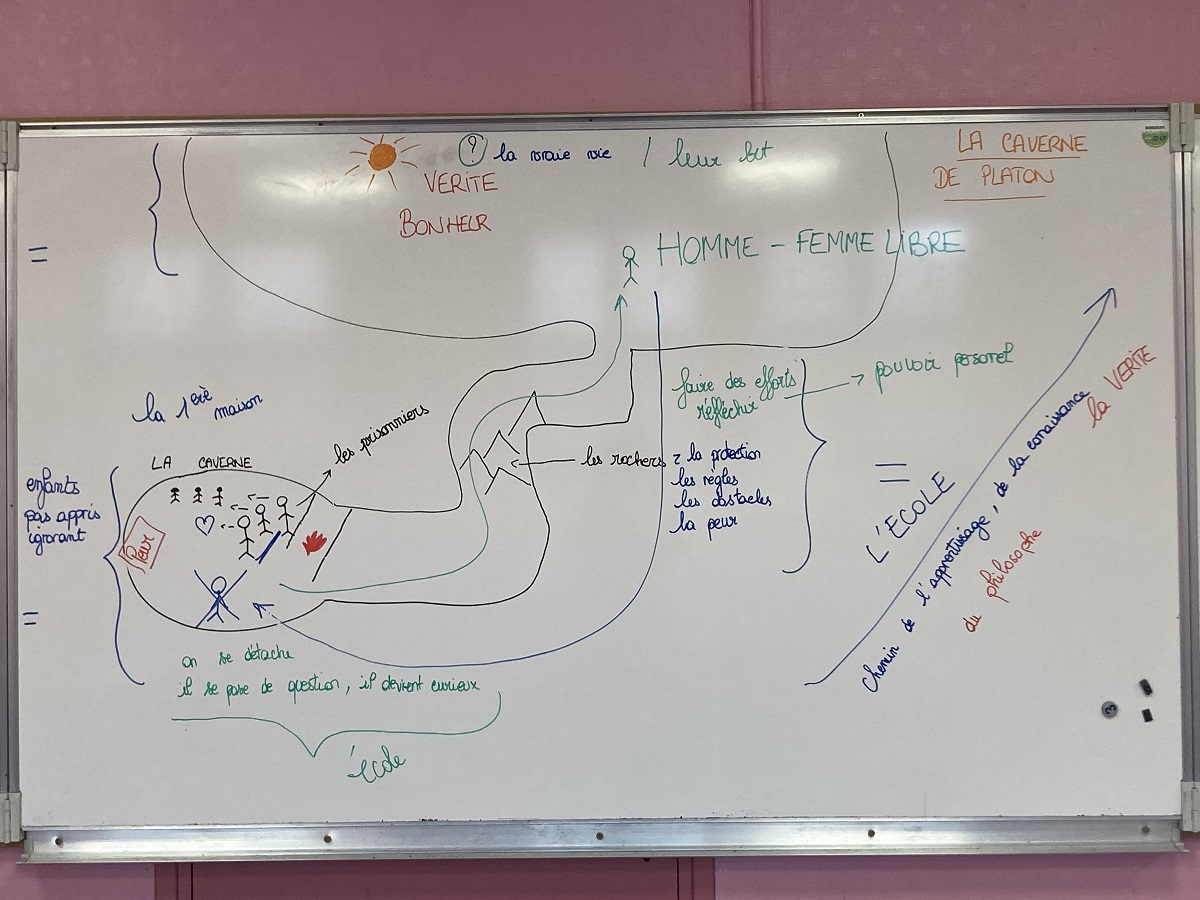 ? la vraie vie / leur but
LA CAVERNE
DE PLATON
VERITE
BONHEUR
=
HOMME - FEMME LIBRE
faire des efforts
réfléchir
→ pouvoir personel
la 1ère maison
les prisonniers
LA CAVERNE
les rochers = la protection
les règles
les obstacles
la peur
=
L'ECOLE
Chemin de l'apprentissage, de la conaissance
la VERITE
du philosophe
enfants
pas appris
ignorant
=
Peur
on se détache
il se pose de question, il devient curieux
école